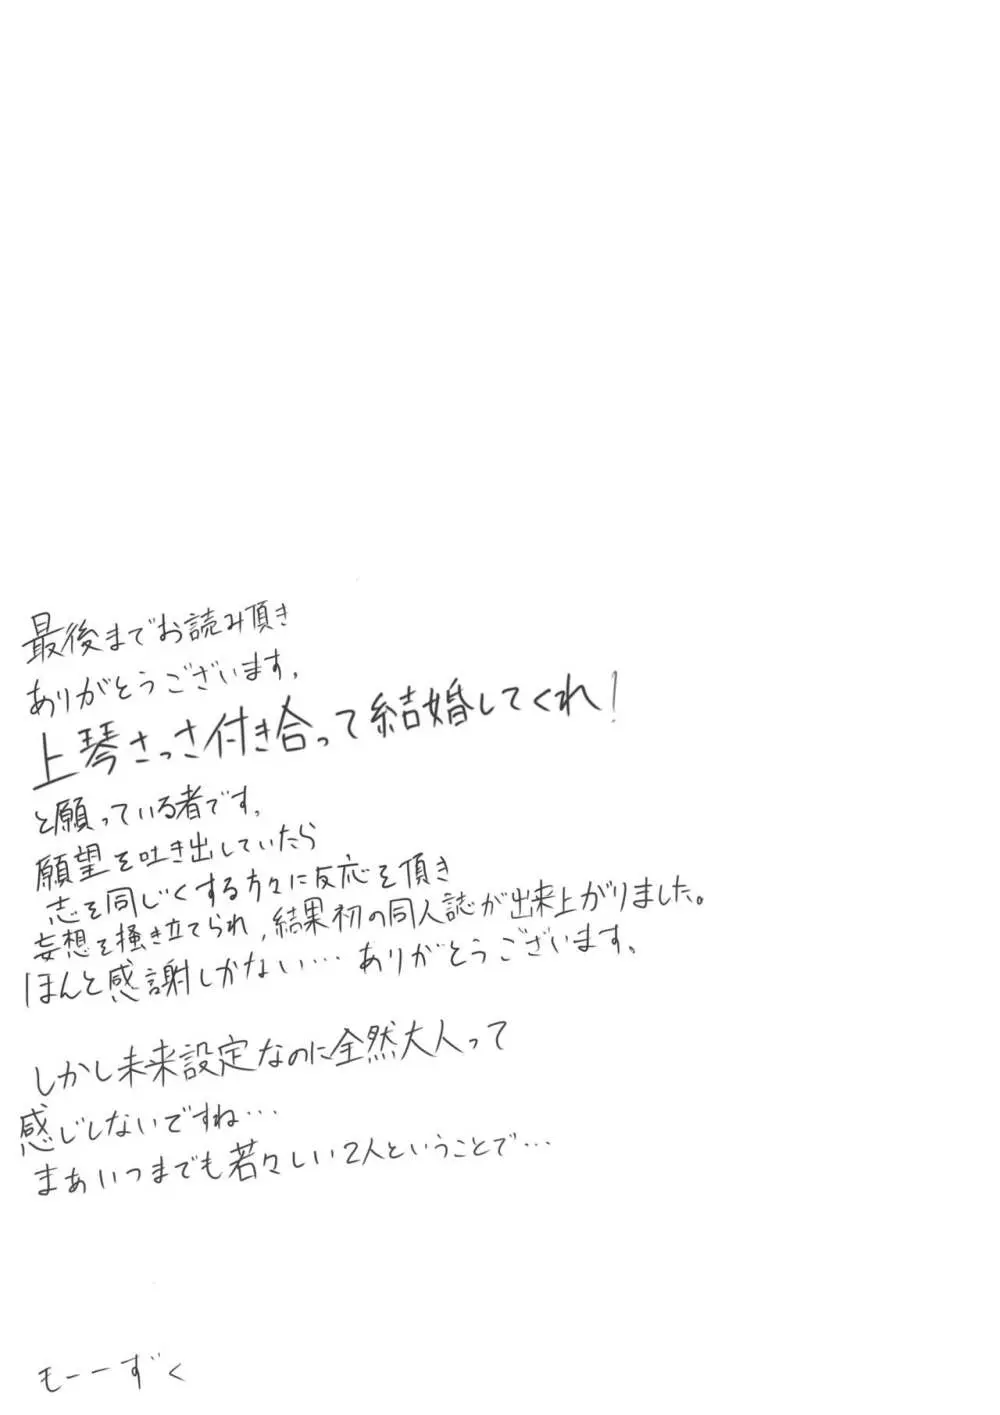 最後までお読み頂き
ありがとうございます。
上琴さっさ付き合って結婚してくれ!
と願っている者です。
願望を吐き出していたら
志を同じくする方々に反応を頂き
妄想を掻き立てられ、結果初の同人誌が出来上がりました。
ほんと感謝しかない… ありがとうございます。
しかし未来設定なのに全然大人って
感じしないですね…
まあいつまでも若々しい2人ということで…
もーーずく